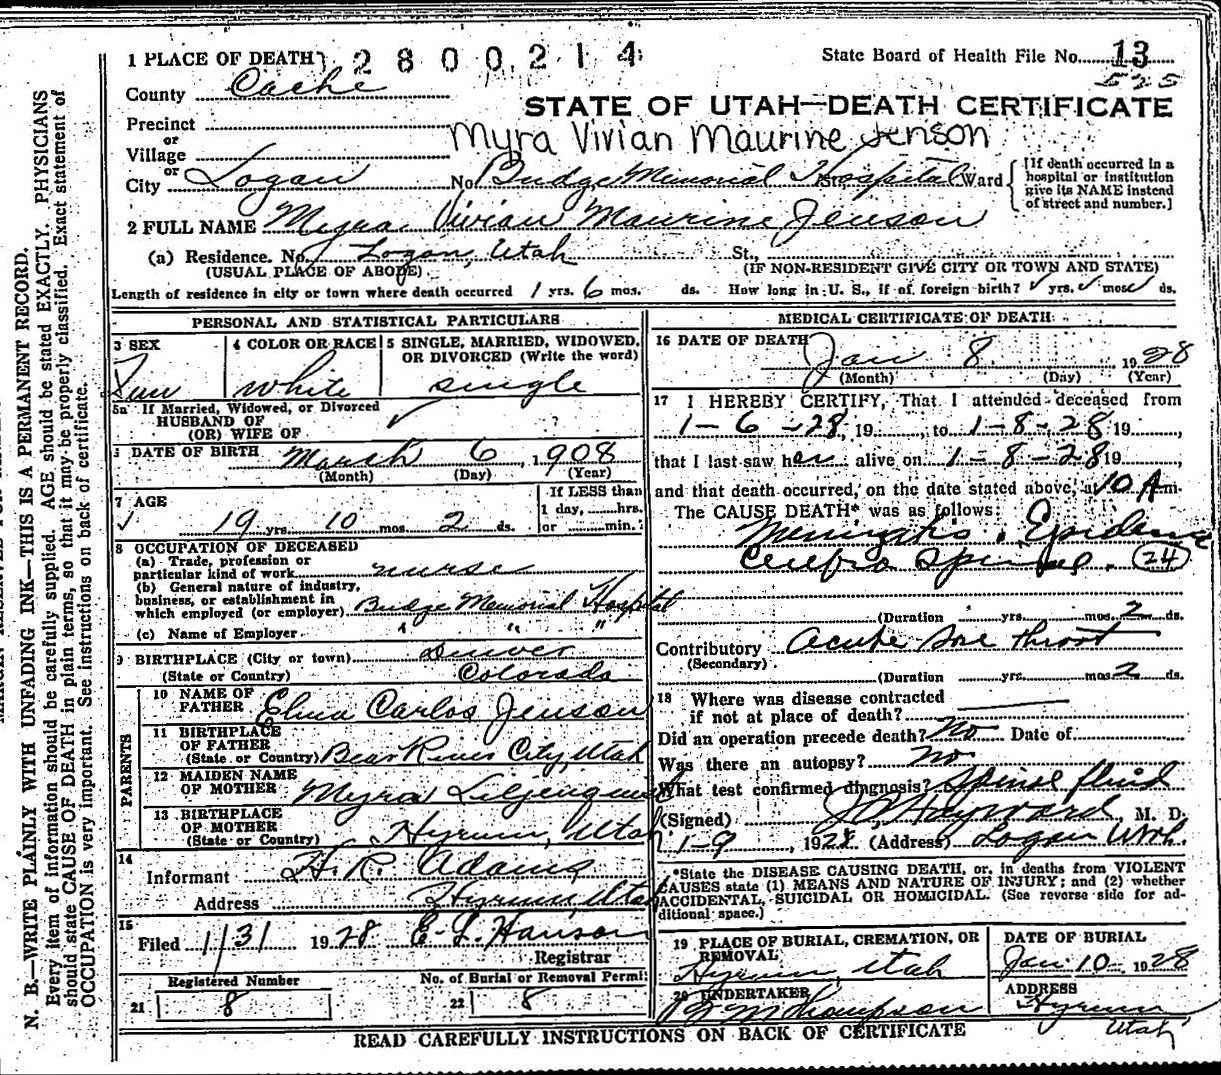 1 PLACE OF DEATH 2 8 0 0 2 1 4 State Board of Health File No. 13
525
County Cache
STATE OF UTAH—DEATH CERTIFICATE
Precinct
or
Myra Vivian Maurine Jenson
Village
or
City Logan No. Budge Memorial Hospital St. Ward
[If death occurred in a hospital or institution give its NAME instead of street and number.]
2 FULL NAME Myra Vivian Maurine Jenson
(a) Residence. No. Logan, Utah St.,
(USUAL PLACE OF ABODE) (IF NON-RESIDENT GIVE CITY OR TOWN AND STATE)
Length of residence in city or town where death occurred 1 yrs. 6 mos. ds. How long in U. S., if of foreign birth? ✓ yrs. ✓ mos. ✓ ds.
PERSONAL AND STATISTICAL PARTICULARS
3 SEX
Fem
4 COLOR OR RACE
White
5 SINGLE, MARRIED, WIDOWED, OR DIVORCED (Write the word)
single
5a If Married, Widowed, or Divorced
HUSBAND OF
(OR) WIFE OF ✓
DATE OF BIRTH March 6, 1908
(Month) (Day) (Year)
7 AGE
19 yrs. 10 mos. 2 ds.
If LESS than
1 day, hrs.
or min.
8 OCCUPATION OF DECEASED
(a) Trade, profession or
particular kind of work nurse
(b) General nature of industry,
business, or establishment in
which employed (or employer) Budge Memorial Hospital
(c) Name of Employer " " "
9 BIRTHPLACE (City or town) Denver
(State or Country) Colorado
PARENTS
10 NAME OF
FATHER Carlos Jenson
11 BIRTHPLACE
OF FATHER
(State or Country) Bear River City, Utah
12 MAIDEN NAME
OF MOTHER Myra
13 BIRTHPLACE
OF MOTHER
(State or Country) Hyrum, Utah
14
Informant H. R. Adams
Address Hyrum, Utah
15
Filed 1/31 1928 E. L. Hanson
Registrar
Registered Number
21 8
No. of Burial or Removal Permit
22 8
MEDICAL CERTIFICATE OF DEATH
16 DATE OF DEATH Jan 8 1928
(Month) (Day) (Year)
17 I HEREBY CERTIFY, That I attended deceased from
1-6-28, 19 , to 1-8-28 19 ,
that I last saw her alive on 1-8-28 19 ,
and that death occurred, on the date stated above, at 10 A m.
The CAUSE DEATH* was as follows:
Meningitis. Epidemic
Cerebro Spinal. (24)
(Duration yrs. mos. 2 ds.
Contributory acute sore throat
(Secondary)
(Duration yrs. mos. 2 ds.
18 Where was disease contracted
if not at place of death?
Did an operation precede death? No Date of
Was there an autopsy? No
What test confirmed diagnosis? Spinal fluid
(Signed) Hayward, M. D.
1-9, 1928 (Address) Logan Utah.
*State the DISEASE CAUSING DEATH, or, in deaths from VIOLENT
CAUSES state (1) MEANS AND NATURE OF INJURY; and (2) whether
ACCIDENTAL, SUICIDAL OR HOMICIDAL. (See reverse side for ad-
ditional space.)
19 PLACE OF BURIAL, CREMATION, OR
REMOVAL
Hyrum, Utah
DATE OF BURIAL
Jan 10 1928
20 UNDERTAKER
Thompson
ADDRESS
Hyrum
Utah
READ CAREFULLY INSTRUCTIONS ON BACK OF CERTIFICATE
N. B.—WRITE PLAINLY WITH UNFADING INK—THIS IS A PERMANENT RECORD.
Every item of information should be carefully supplied. AGE should be stated EXACTLY. PHYSICIANS
should state CAUSE OF DEATH in plain terms, so that it may be properly classified. Exact statement of
OCCUPATION is very important. See instructions on back of certificate.